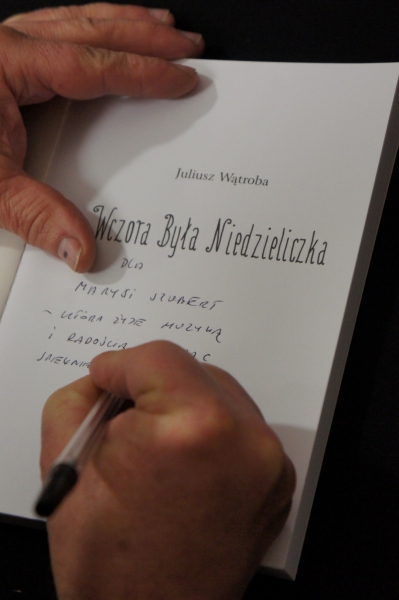 Juliusz Wątroba
Wczora Była Niedzieliczka
DLA
MARYSI SZUBERT
- KTÓRA ŻYJE MUZYKĄ
I RADOŚCIĄ